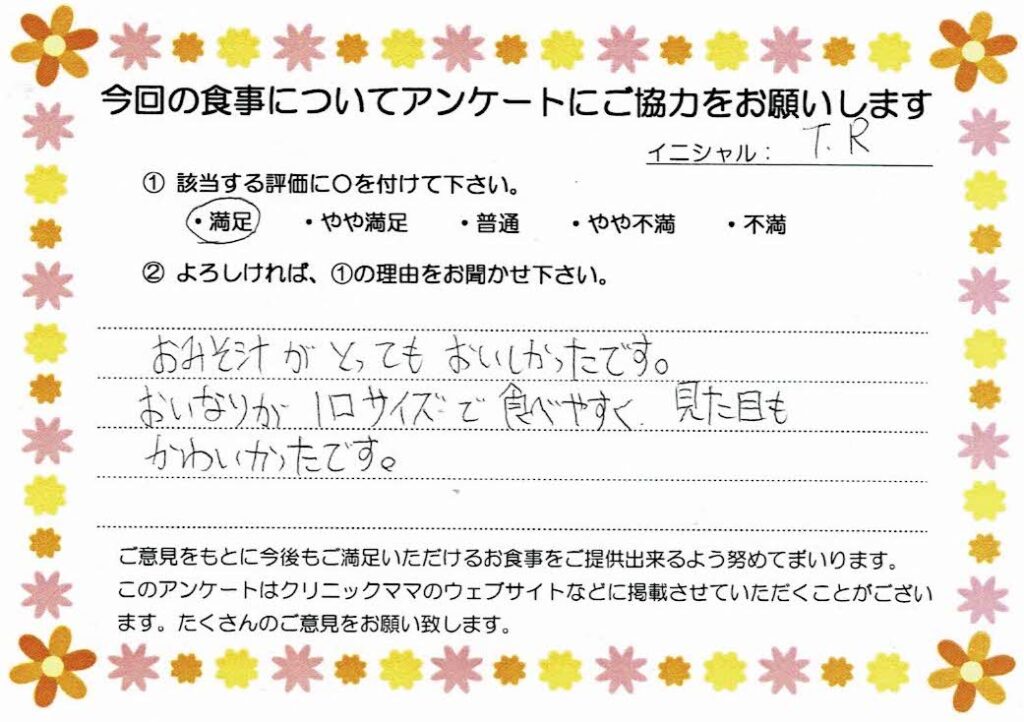 今回の食事についてアンケートにご協力をお願いします
イニシャル： T.R
① 該当する評価に〇を付けて下さい。
・満足 ・やや満足 ・普通 ・やや不満 ・不満
② よろしければ、①の理由をお聞かせ下さい。
おみそ汁がとってもおいしかったです。
おいなりが1口サイズで食べやすく、見た目も
かわいかったです。
ご意見をもとに今後もご満足いただけるお食事をご提供出来るよう努めてまいります。
このアンケートはクリニックママのウェブサイトなどに掲載させていただくことがござい
ます。たくさんのご意見をお願い致します。